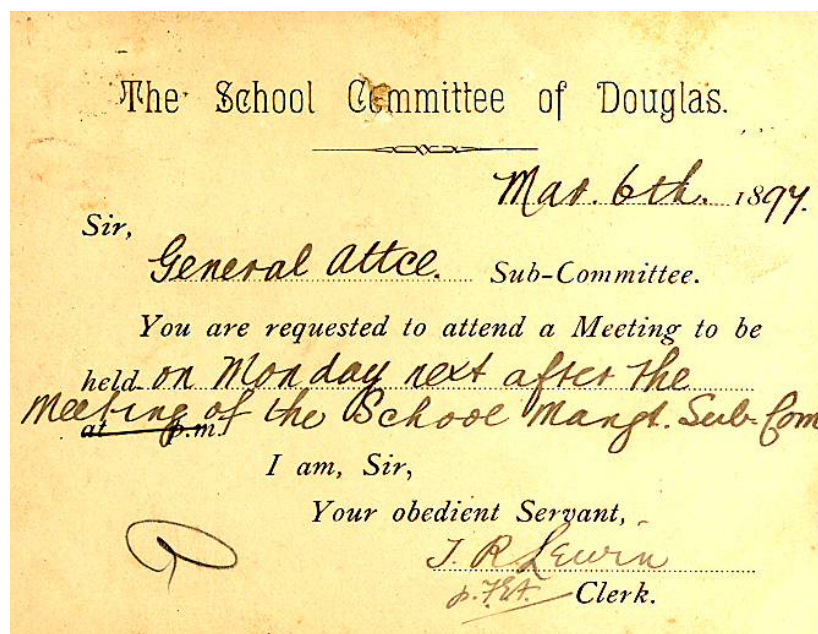 The School Committee of Douglas.
Mar. 6th. 1897.
Sir,
General Attce. Sub-Committee.
You are requested to attend a Meeting to be
held on Monday next after the
Meeting of the School Mangt. Sub-Com
at p.m.
I am, Sir,
Your obedient Servant,
T. R. Lewin
Clerk.